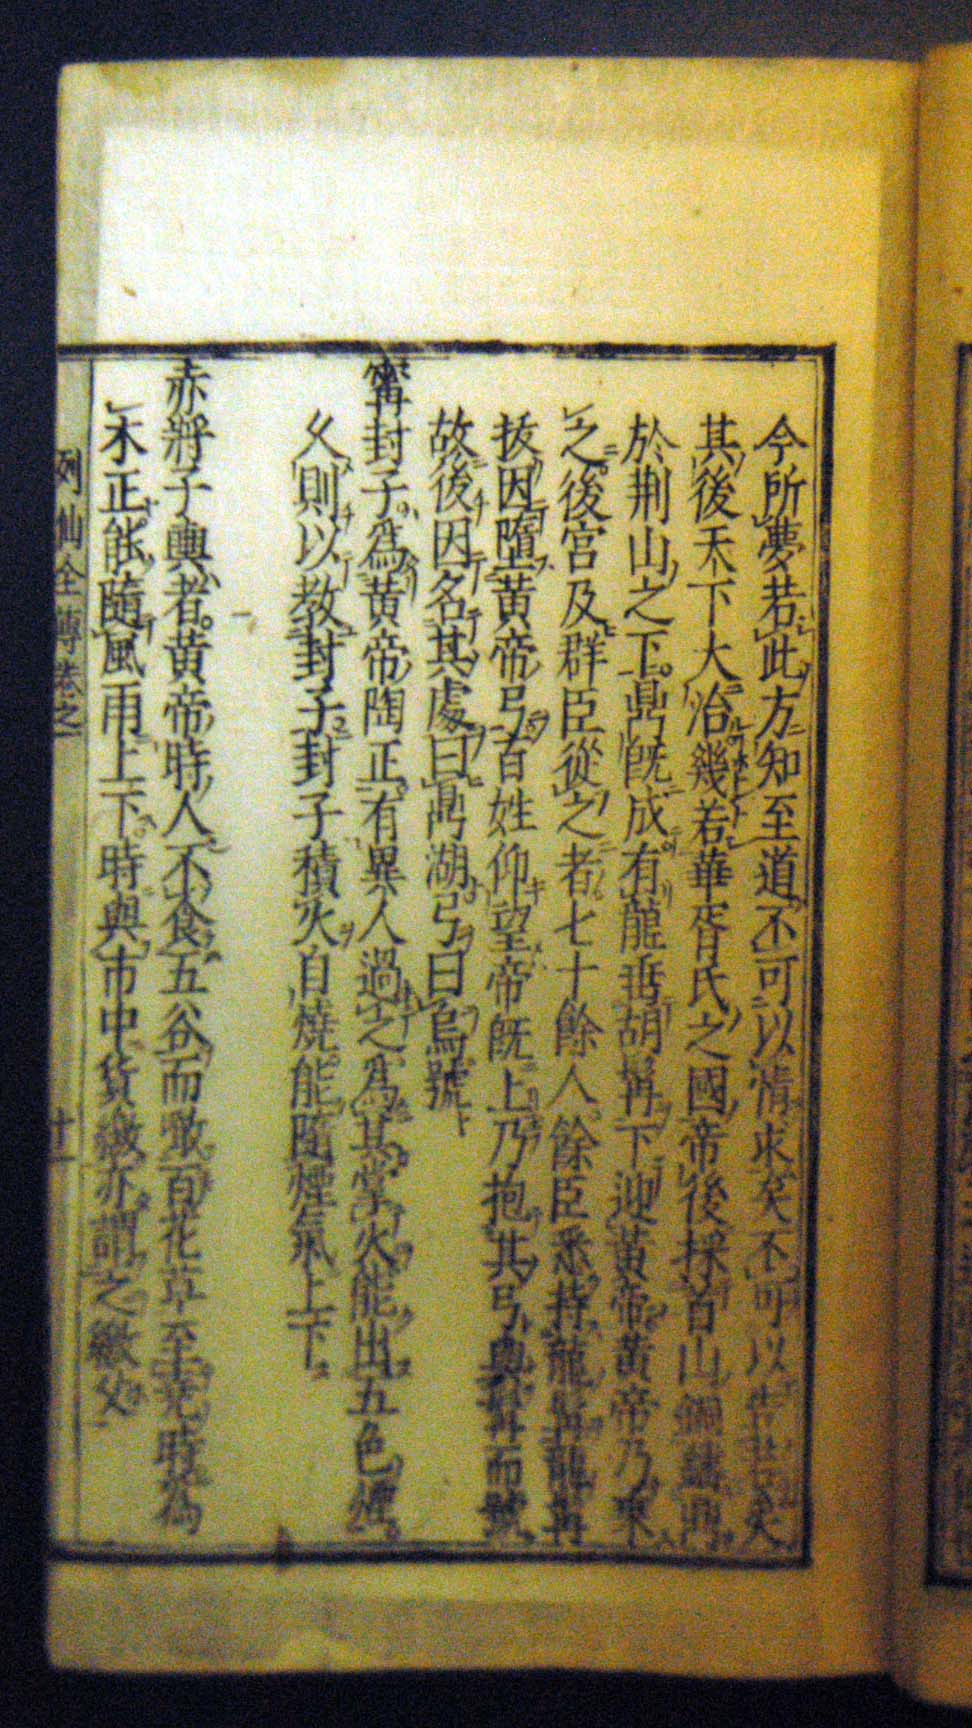 今所夢若此方知至道不可以情求矣不可以告
其後天下大治幾若華胥氏之國帝後採首山銅鑄鼎
於荆山之下鼎既成有龍垂胡髯下迎黃帝黃帝乃乘
之後宮及群臣從之者七十餘人餘臣悉持龍髯龍髯
拔因墮黃帝弓百姓仰望帝既上乃抱其弓與髯而號
故後因名其處曰鼎湖弓曰烏號
甯封子為黃帝陶正有異人過之為其掌火能出五色煙
久則以教封子封子積火自燒能隨煙氣上下
赤將子輿者黃帝時人不食五谷而噉百花草至堯時為
木正能隨風雨上下時與市中貨繳亦謂之繳父
列仙全傳卷之